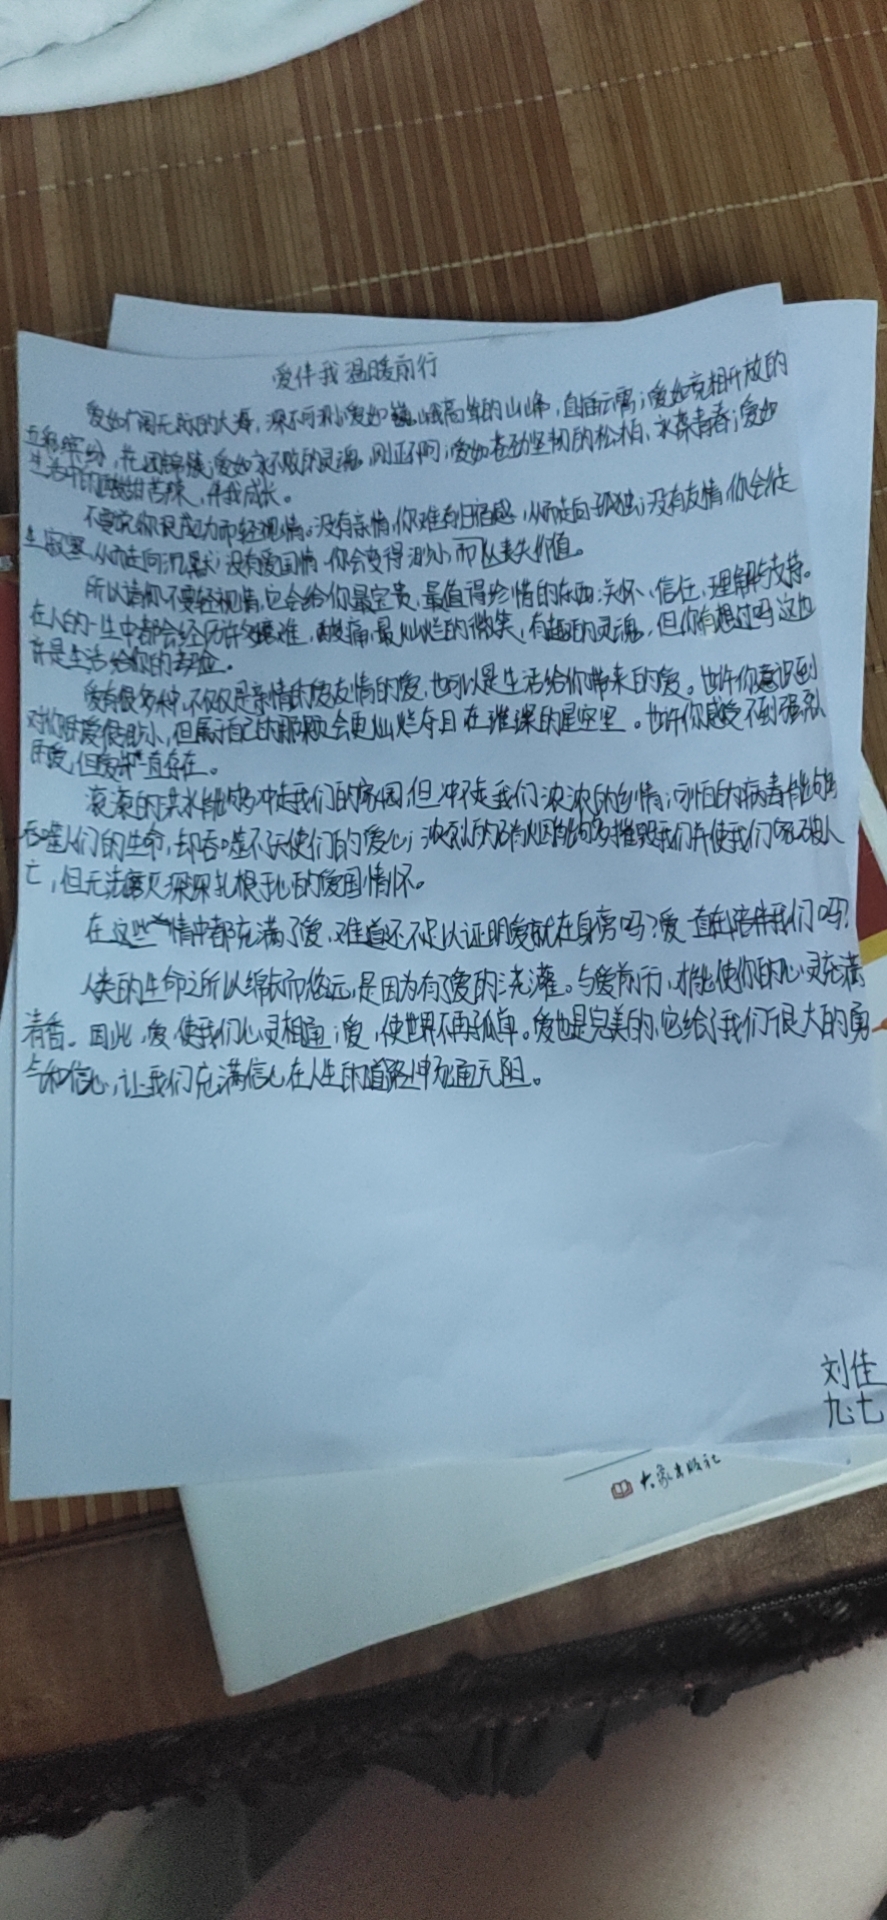 爱伴我温暖前行
爱如广阔无际的大海，深不可测；爱如巍峨高耸的山峰，直插云霄；爱如竞相开放的
五彩缤纷，花团锦簇；爱如永不败的灵魂，刚正不阿；爱如苍劲坚韧的松柏，永葆青春；爱如
生活中的酸甜苦辣，伴我成长。
不要说你很成功而轻视情。没有亲情，你难有归宿感，从而走向孤独；没有友情，你会徒
生寂寞，从而走向沉默；没有爱国情，你会变得渺小而丧失价值。
所以请你不要轻视情，它会给你最宝贵，最值得珍惜的东西：关怀、信任、理解与支持。
在人的一生中都会经历许多艰难，酸痛，最灿烂的微笑，有趣的灵魂，但你有想过吗这也
许是生活给你的考验。
爱有很多种，不仅仅是亲情的爱友情的爱，也可以是生活给你带来的爱。也许你意识到
对你的爱很渺小，但属于自己的那颗会更灿烂夺目在璀璨的星空里。也许你感受不到强烈
的爱，但爱一直存在。
滚滚的洪水能够冲走我们的家园，但冲不走我们浓浓的乡情；可怕的病毒能够
吞噬人们的生命，却吞噬不天使们的爱心；浓烈的硝烟能够摧毁我们并使我们家破人
亡，但无法磨灭深深扎根于心的爱国情怀。
在这些情中都充满了爱，难道还不足以证明爱就在身旁吗？爱一直在陪伴我们吗？
人类的生命之所以绵长而悠远，是因为有了爱的浇灌。与爱前行，才能使你的心灵充满
清香。因此，爱，使我们心灵相通；爱，使世界不再孤单。爱也是完美的，它给了我们很大的勇
气和信心，让我们充满信心在人生的道路中畅通无阻。
刘佳
九七
大象出版社